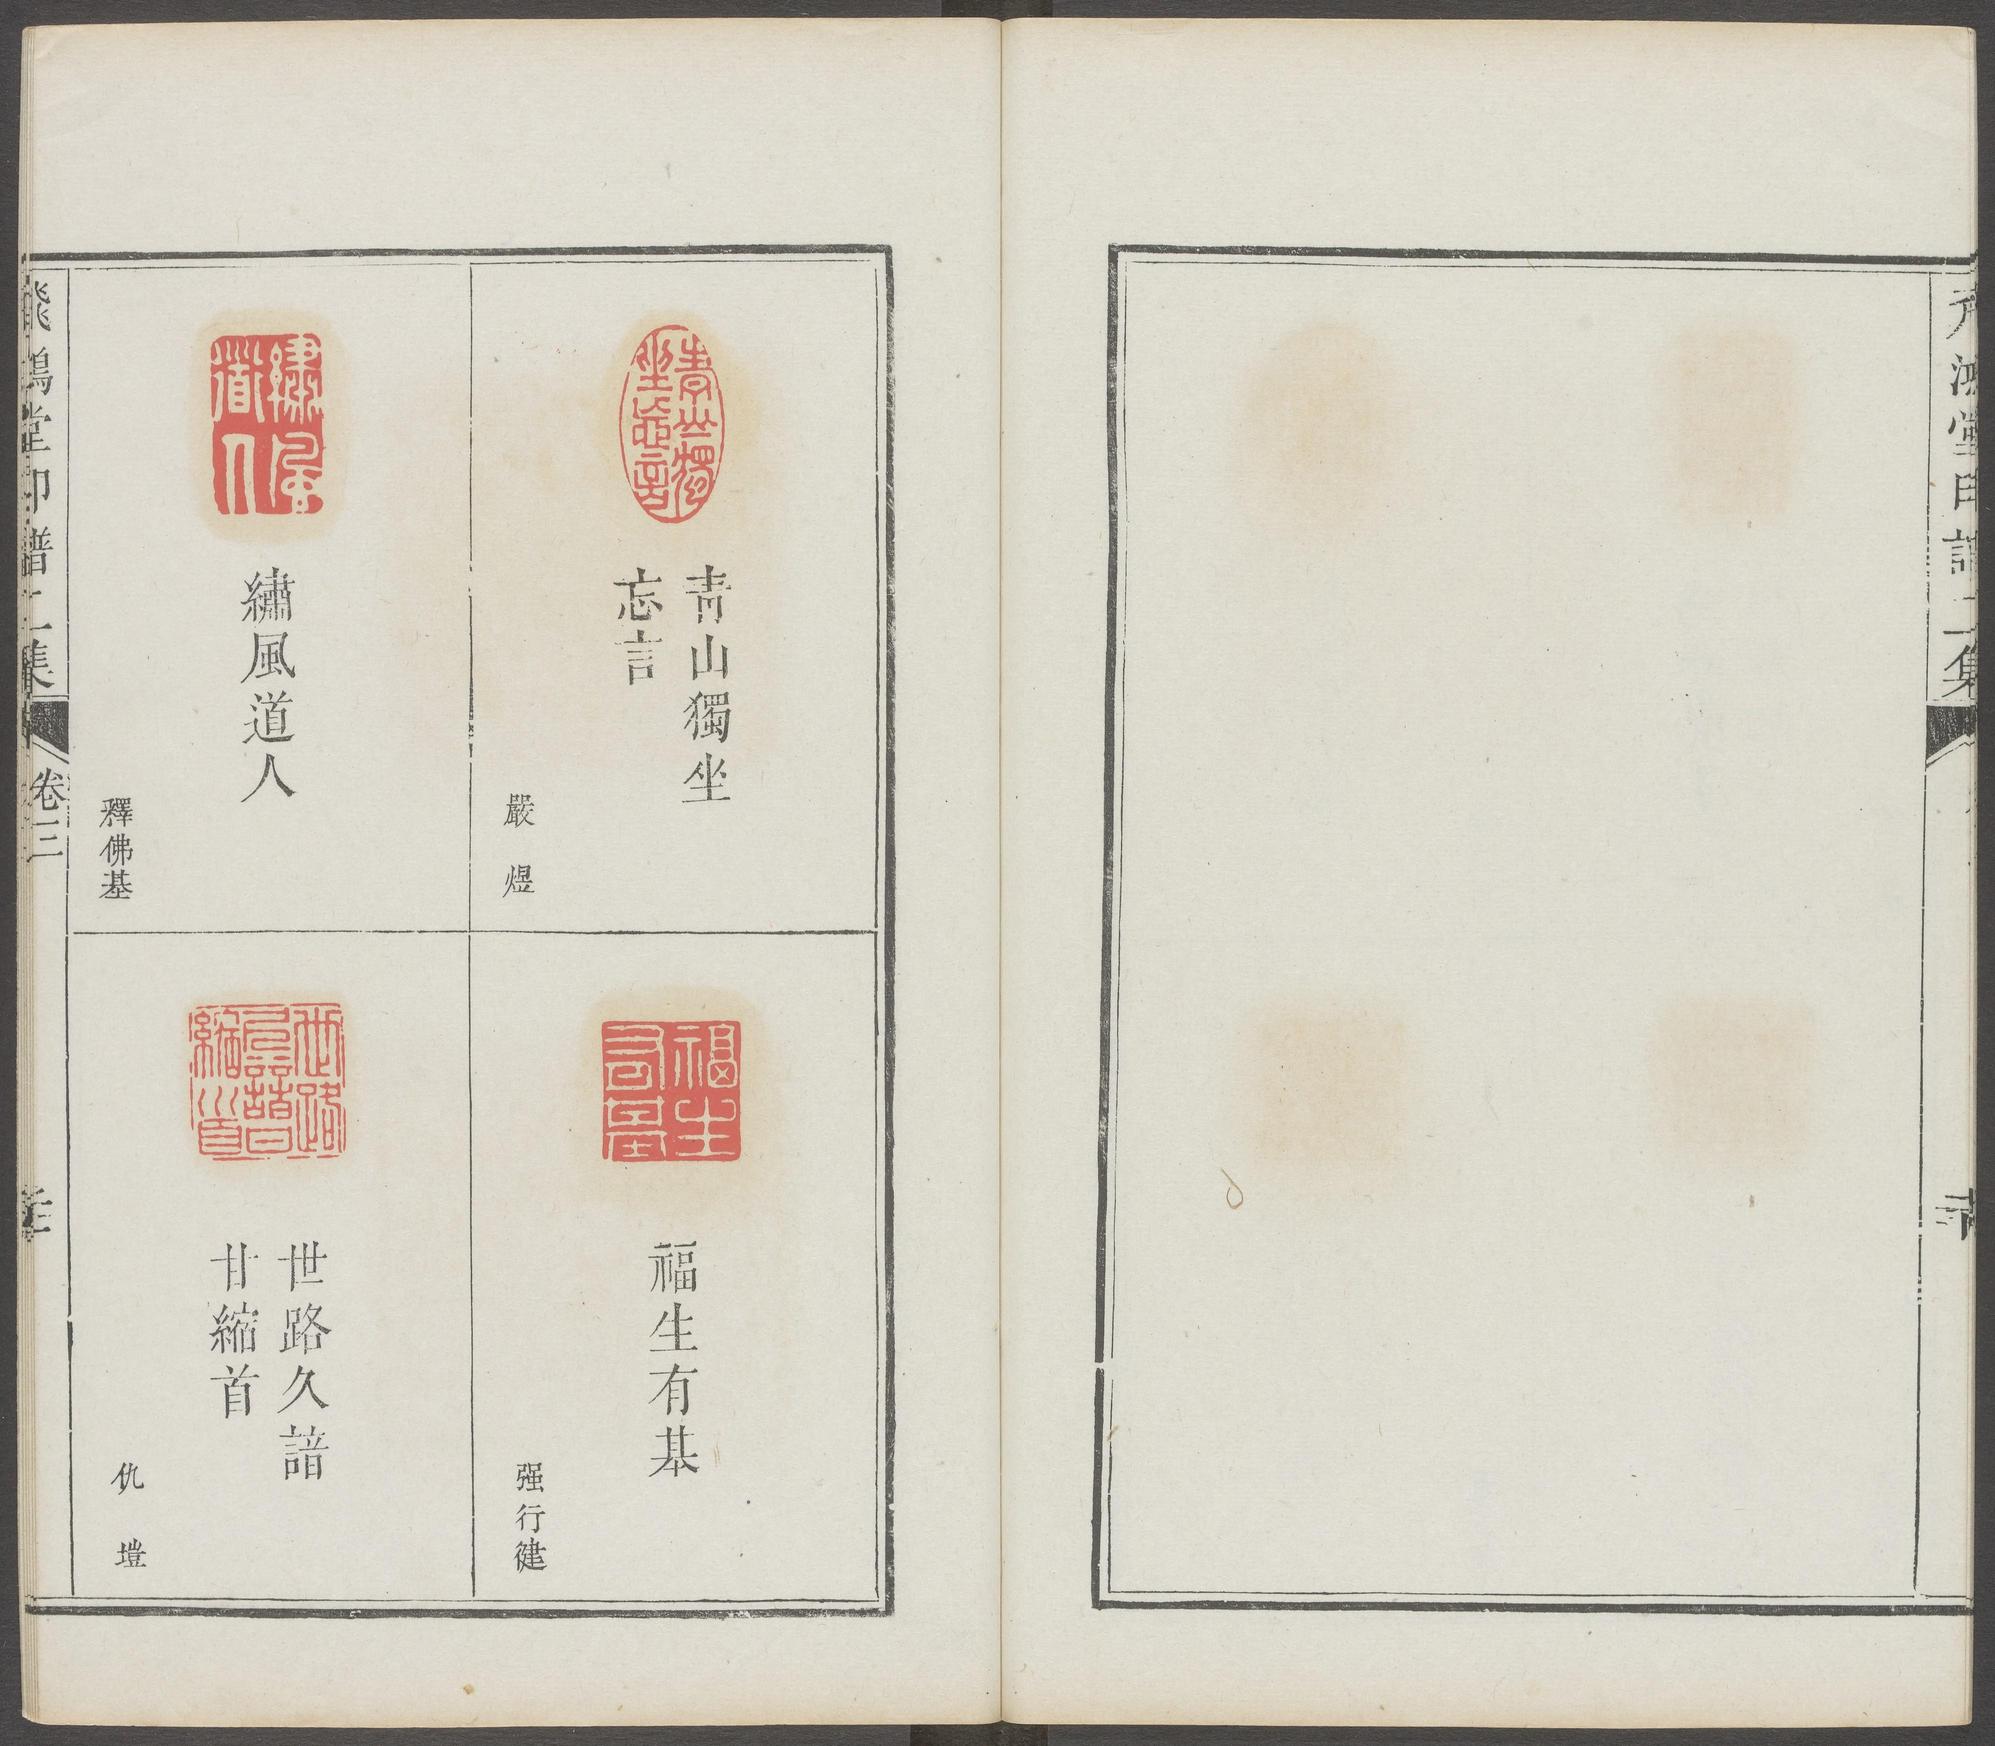 飛鴻堂印譜二集
青山獨坐
忘言
嚴煜
福生有基
强行健
繡風道人
釋佛基
世路久諳
甘縮首
仇塏
飛鴻堂印譜二集
卷三